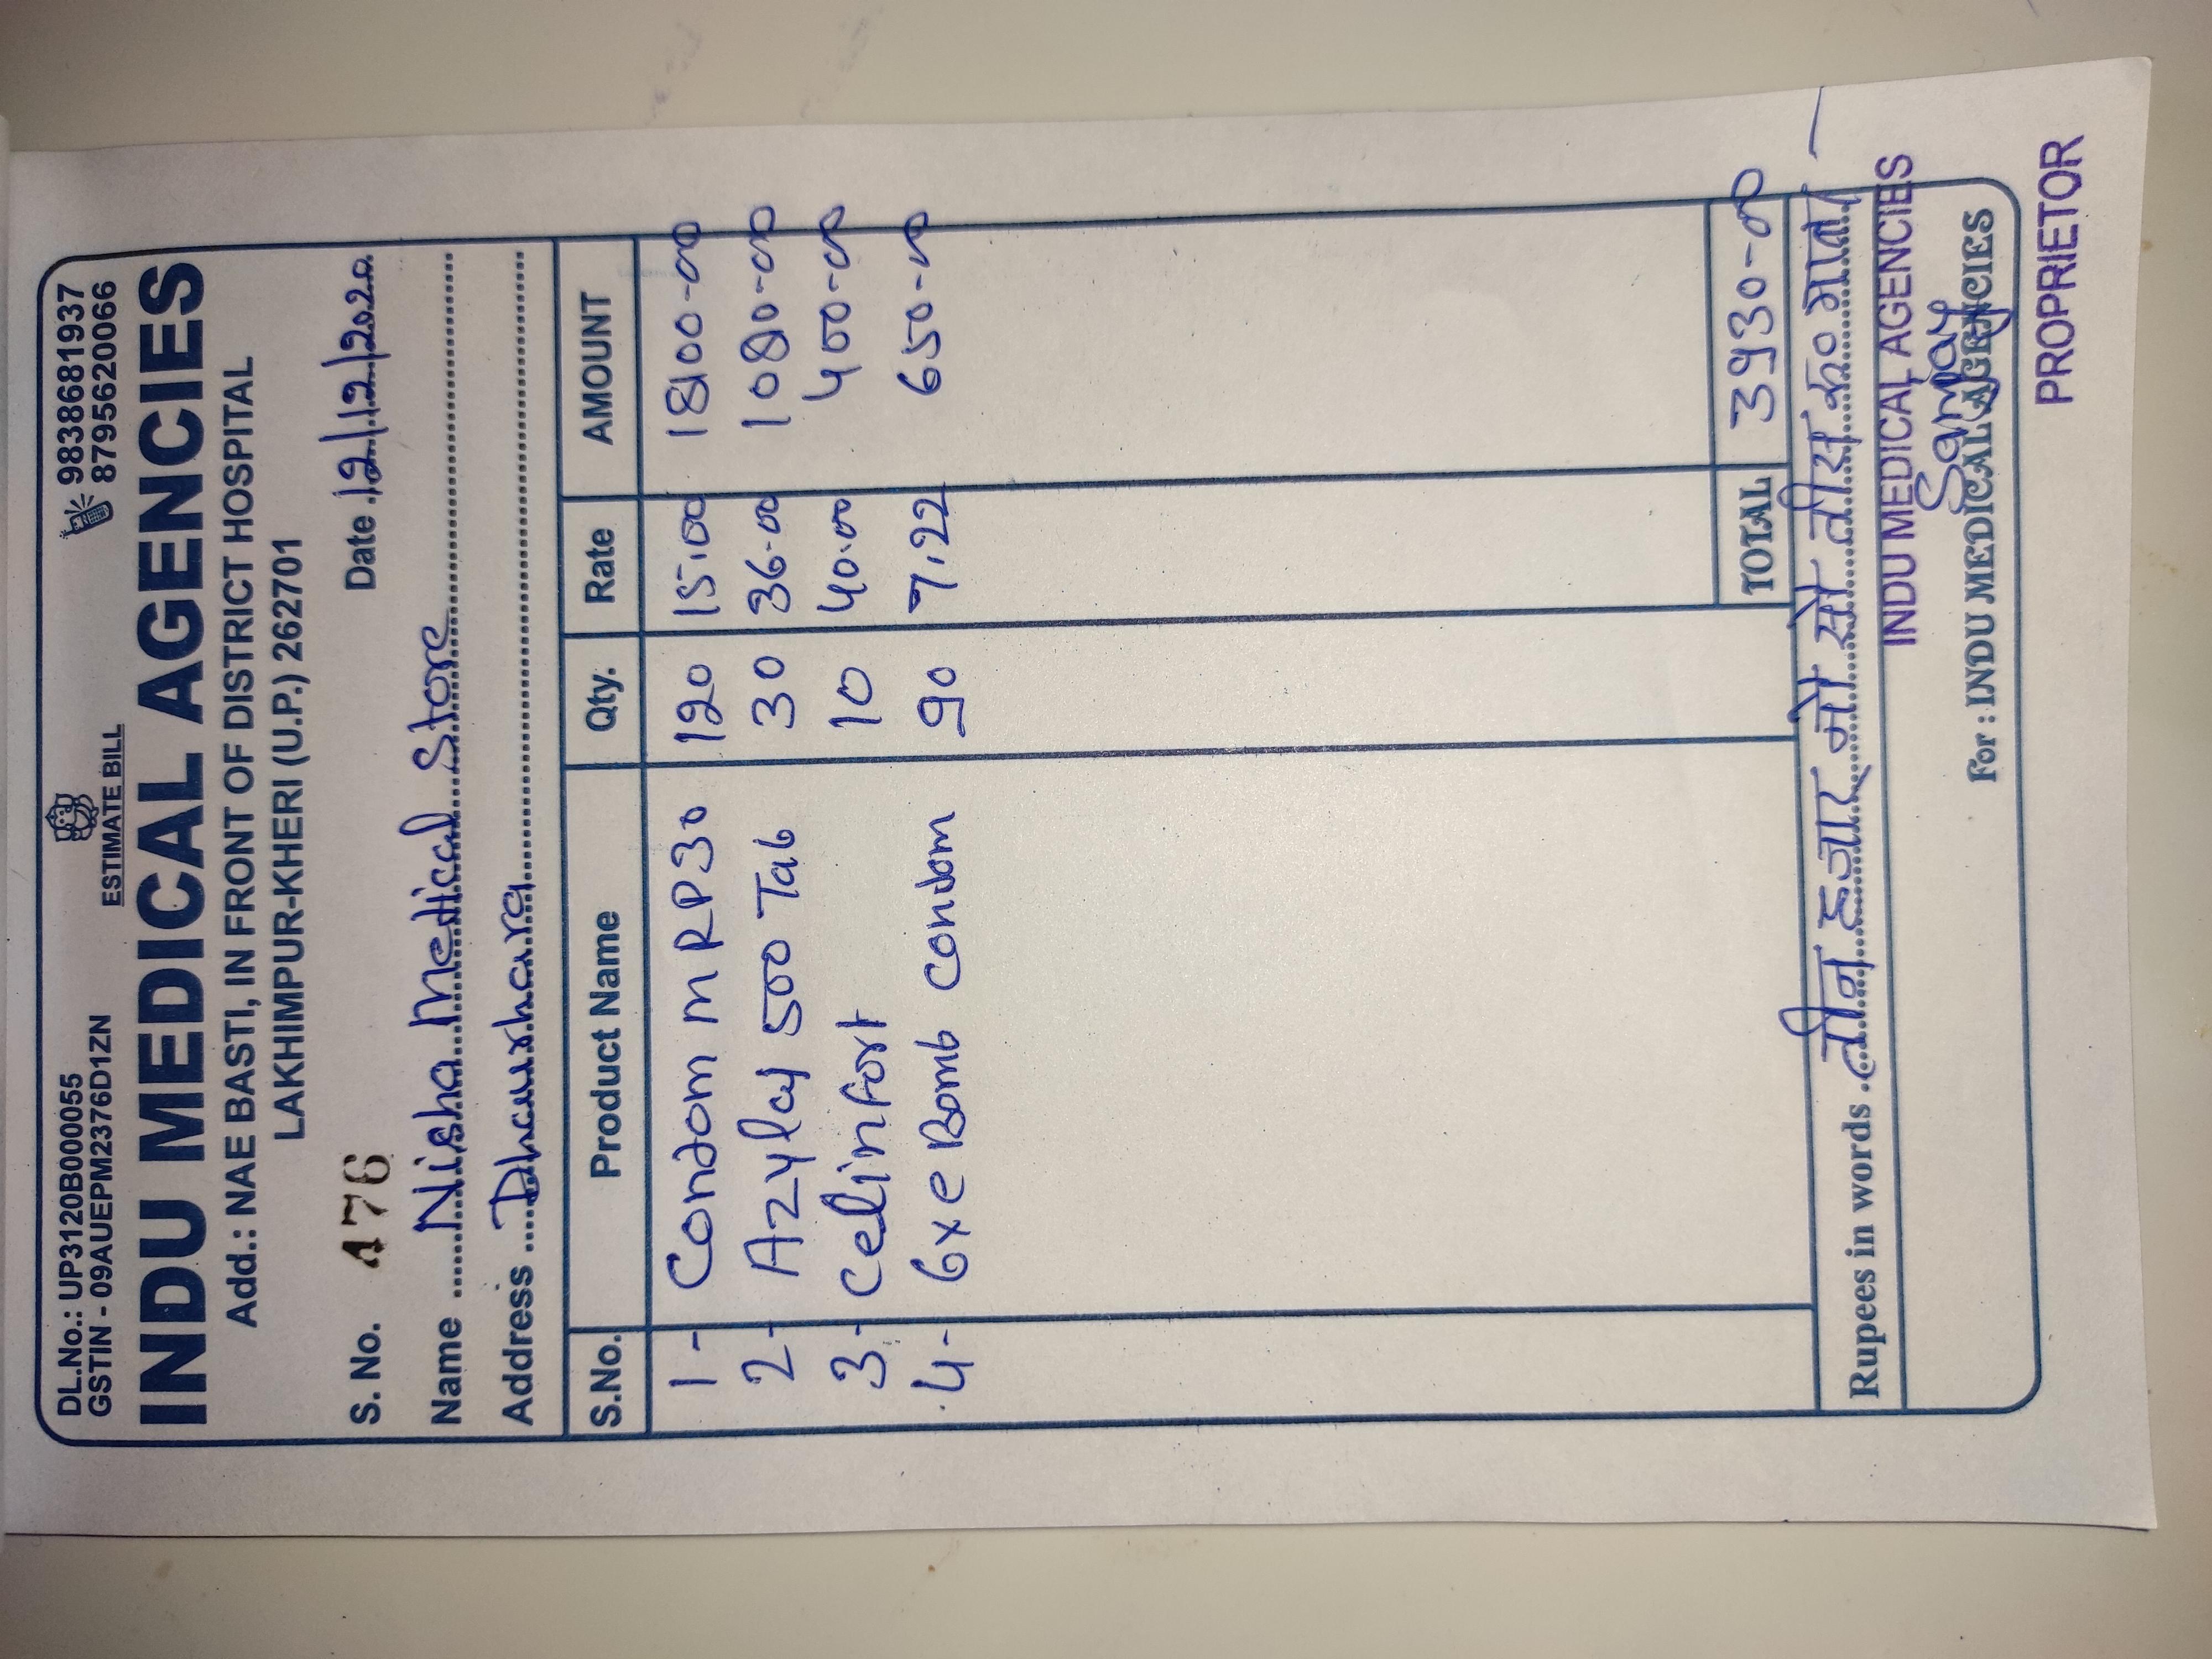 DL.No.: UP3120B000055
GSTIN - 09AUEPM2376D1ZN
ESTIMATE BILL
9838681937
8795620066
INDU MEDICAL AGENCIES
Add.: NAE BASTI, IN FRONT OF DISTRICT HOSPITAL
LAKHIMPUR-KHERI (U.P.) 262701
S. No. 476 Date 12/12/2020
Name Nisha Medical Store
Address Dhaurhara
S.No. Product Name Qty. Rate AMOUNT
1- Condom MRP30 120 15.00 1800-00
2- Azylaj 500 Tab 30 36-00 1080-00
3- Celinfort 10 40.00 400-00
4- 6xe Bomb Condom 90 7.22 650-00
TOTAL 3930-00
Rupees in words तीन हजार नो सो तीस रू० मात्र
INDU MEDICAL AGENCIES
Sanjay
For : INDU MEDICAL AGENCIES
PROPRIETOR